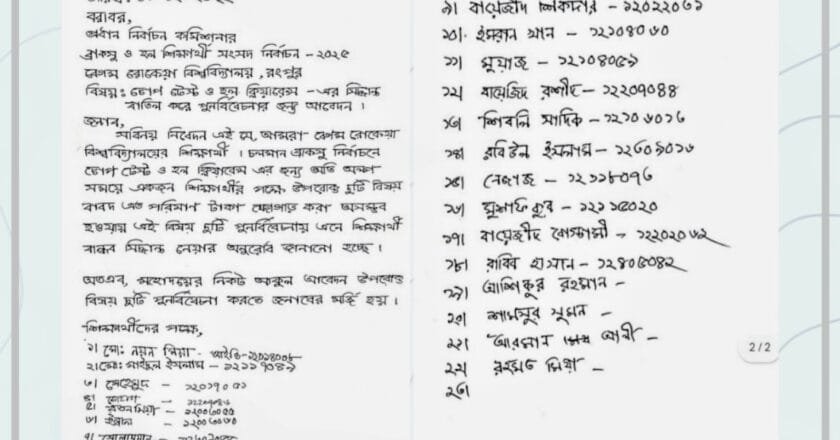 বরাবর,
প্রধান নির্বাচন কমিশনার
ব্রাকসু ও হল শিক্ষার্থী সংসদ নির্বাচন - ২০২৫
বেগম রোকেয়া বিশ্ববিদ্যালয়, রংপুর
বিষয়: ডোপ টেস্ট ও হল ক্লিয়ারেন্স - এর সিদ্ধান্ত
বাতিল করে পুনর্বিবেচনার জন্য আবেদন।
জনাব,
সবিনয় নিবেদন এই যে, আমরা বেগম রোকেয়া
বিশ্ববিদ্যালয়ের শিক্ষার্থী। চলমান ব্রাকসু নির্বাচনে
ডোপ টেস্ট ও হল ক্লিয়ারেন্স এর জন্য অতি অল্প
সময়ে একজন শিক্ষার্থীর পক্ষে উপরোক্ত দুটি বিষয়
বাবদ এত পরিমাণ টাকা জোগাড় করা অসম্ভব
হওয়ায় এই বিষয় দুটি পুনর্বিবেচনায় এনে শিক্ষার্থী
বান্ধব সিদ্ধান্ত নেয়ার অনুরোধ জানানো হচ্ছে।
অতএব, মহোদয়ের নিকট আকুল আবেদন উপরোক্ত
বিষয় দুটি পুনর্বিবেচনা করতে জনাবের মর্জি হয়।
শিক্ষার্থীদের পক্ষে,
১। মো: নয়ন মিয়া - আইডি-
২। মো: সাইদুল ইসলাম -
৩।
৪।
৫।
৬।
৭।
৯। বায়েজীদ শিকদার - ১২০২২০৬১
১০। ইমরান খান - ১২১০৪০৬০
১১। মুয়াজ - ১২১০৪০৫৯
১২। বায়েজিদ রশীদ - ১২২০৯০৪৪
১৩। শিবলি সাদিক - ১২১০৬০১৬
১৪। রবিউল ইসলাম -
১৫। - ১২১১৮০৭৬
১৬। মুশফিকুর - ১২১১৫০২০
১৭। বায়েজীদ বোস্তামী - ১২২০২০৬২
১৮। রাব্বি হাসান - ১২৪০৫০৪২
১৯। আশিকুর রহমান -
২০। শামসুর সুমন -
২১। আরমান আলী -
২২। রহমত মিয়া -
২৩।
2/2